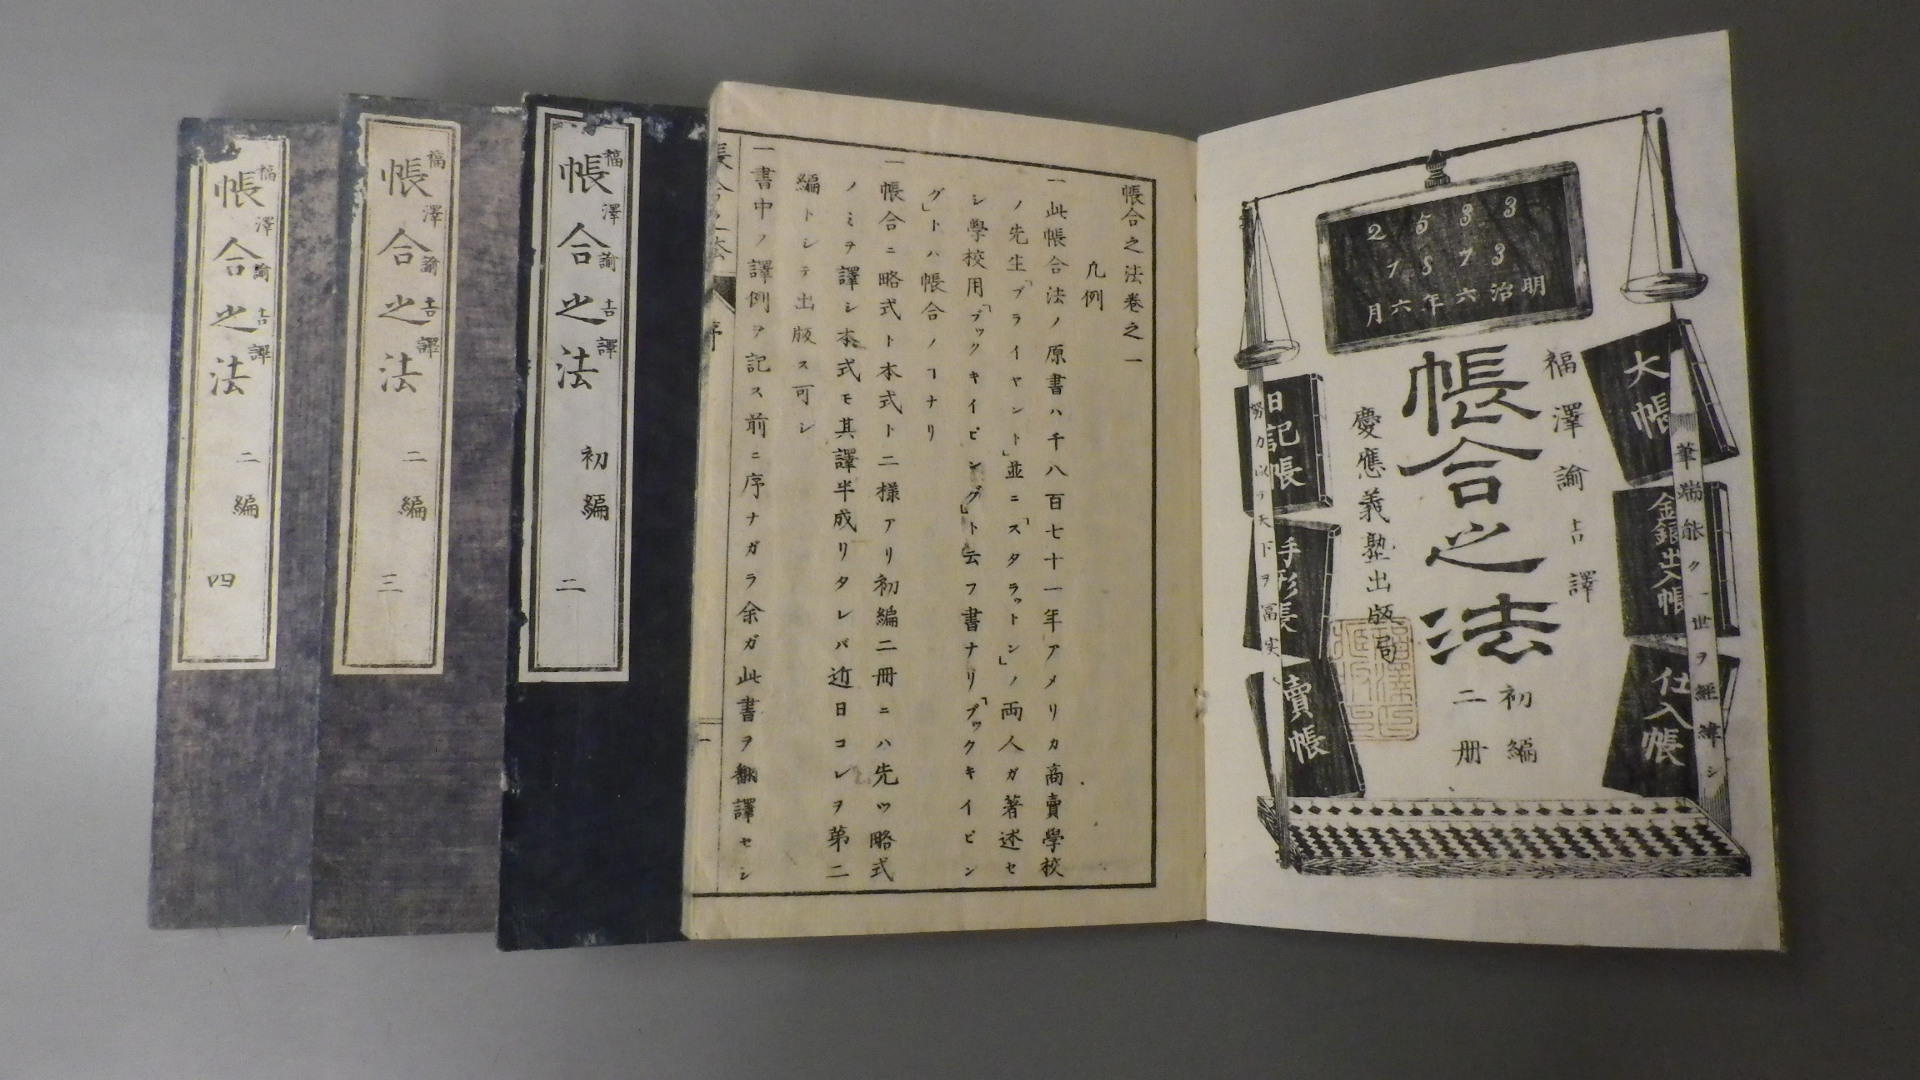 2533
1873
明治六年六月
福澤諭吉譯
帳合之法
初編
二册
慶應義塾出版局
大帳
金銀出入帳
仕入帳
日記帳
手形帳
賣帳
筆端能ク一世ヲ經緯シ
努力以テ天下ヲ冨実
帳合之法卷之一
凡例
一此帳合法ノ原書ハ千八百七十一年アメリカ高賣學校
ノ先生「ブライヤント」並ニ「スタラットン」ノ両人ガ著述セ
シ學校用「ブックキイピング」ト云フ書ナリ「ブックキイピン
グ」トハ帳合ノヿナリ
一帳合ニ略式ト本式ト二様アリ初編二冊ニハ先ツ略式
ノミヲ譯シ本式モ其譯半成リタレバ近日コレヲ第二
編トシテ出版ス可シ
一書中ノ譯例ヲ記ス前ニ序ナガラ余ガ此書ヲ翻譯セシ
序
一
福澤諭吉譯
帳合之法
初編
二
福澤諭吉譯
帳合之法
二編
三
福澤諭吉譯
帳合之法
二編
四